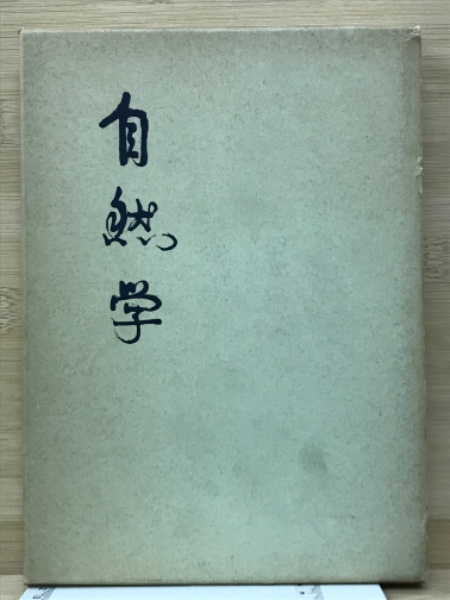 自然学